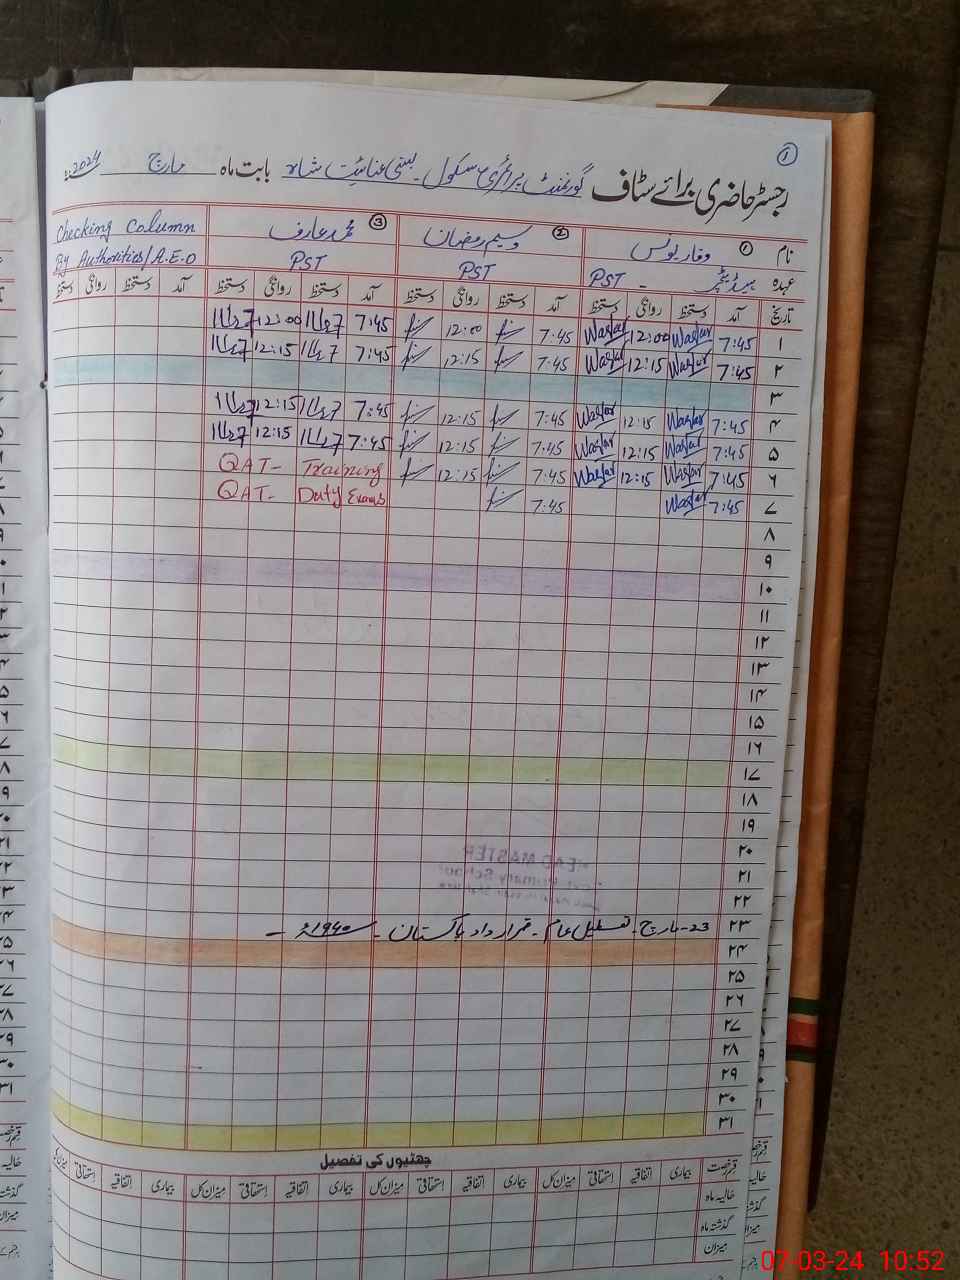 ①
رجسٹر حاضری برائے سٹاف گورنمنٹ پرائمری سکول بستی عنائیت شاہ بابت ماہ مارچ 2024ء
نام ① وقار یونس ② وسیم رمضان ③ محمد عارف Checking Column
عہدہ ہیڈ ٹیچر - PST PST PST By Authorities/A.E.O
تاریخ آمد دستخط روانگی دستخط آمد دستخط روانگی دستخط آمد دستخط روانگی دستخط آمد دستخط روانگی دستخط
۱ 7:45 Waqar 12:00 Waqar 7:45 12:00 7:45 12:00
۲ 7:45 Waqar 12:15 Waqar 7:45 12:15 7:45 12:15
۳
۴ 7:45 Waqar 12:15 Waqar 7:45 12:15 7:45 12:15
۵ 7:45 Waqar 12:15 Waqar 7:45 12:15 7:45 12:15
۶ 7:45 Waqar 12:15 Waqar 7:45 12:15 QAT- Training
۷ 7:45 Waqar 7:45 QAT- Duty Exams
۸
۹
۱۰
۱۱
۱۲
۱۳
۱۴
۱۵
۱۶
۱۷
۱۸
۱۹
۲۰
۲۱
۲۲
۲۳ 23-مارچ - تعطیل عام - قرارداد پاکستان - ۱۹۴۰ء -
۲۴
۲۵
۲۶
۲۷
۲۸
۲۹
۳۰
۳۱
HEAD MASTER
Govt. Primary School
چھٹیوں کی تفصیل
قسم رخصت بیماری اتفاقیہ استحقاقی میزان کل بیماری اتفاقیہ استحقاقی میزان کل بیماری اتفاقیہ استحقاقی میزان کل بیماری اتفاقیہ استحقاقی
حالیہ ماہ
گذشتہ ماہ
میزان
07-03-24 10:52